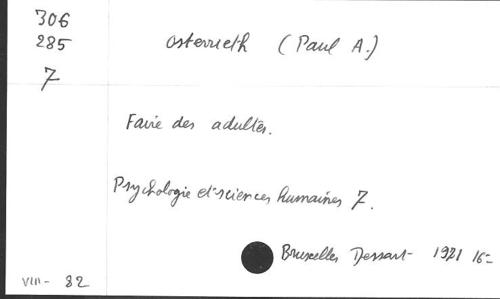 306
285
7
Osterrieth (Paul A.)
Faire des adultes.
Psychologie et sciences humaines 7.
Bruxelles Dessart - 1971 16=
VIII - 82